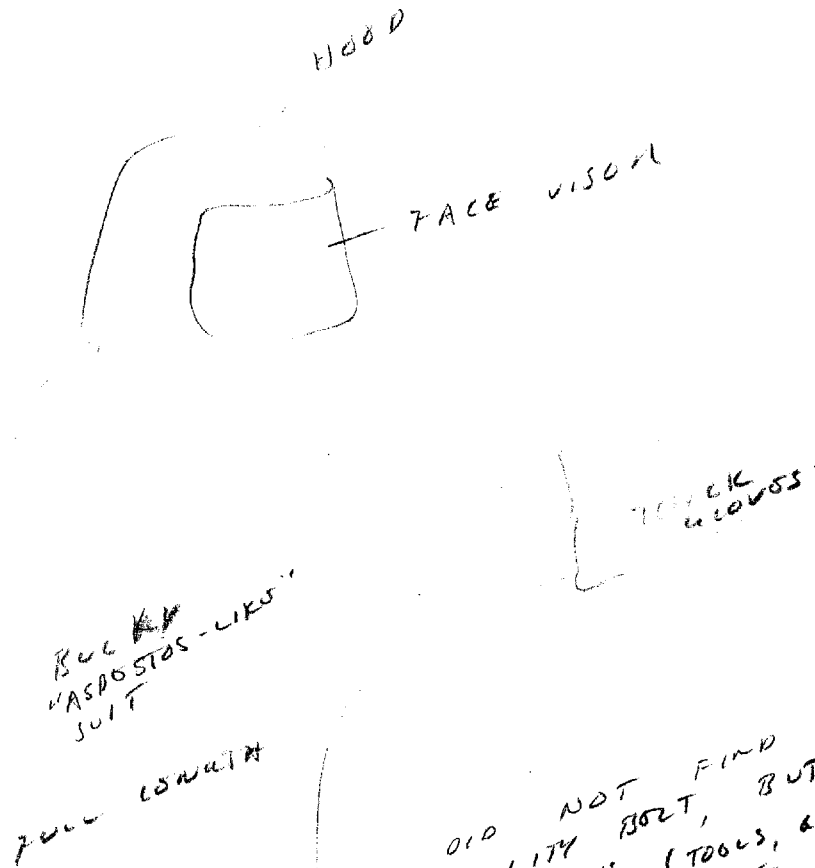 HOOD
FACE VISOR
THICK
GLOVES
BULKY
"ASBESTOS-LIKE"
SUIT
FULL LENGTH
DID NOT FIND
BELT, BUT
(TOOLS, &